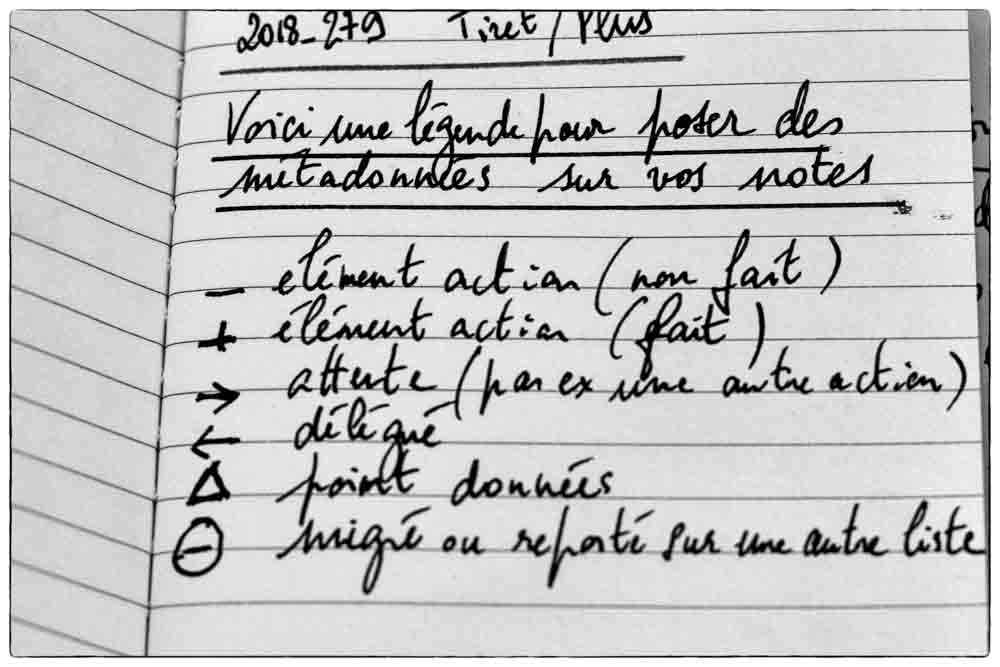 2018_279 Tiret / Plus
Voici une légende pour poser des
métadonnées sur vos notes
— elément action (non fait)
+ élément action (fait)
→ attente (par ex une autre action)
← délégué
Δ point données
⊖ migré ou reporté sur une autre liste